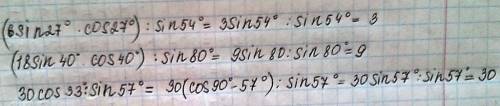 (6sin27° · cos27°) : sin54° = 3sin54° : sin54° = 3
(18sin40° cos40°) : sin80° = 9sin80 : sin80° = 9
30cos33° : sin57° = 30(cos90° - 57°) : sin57° = 30sin57° : sin57° = 30